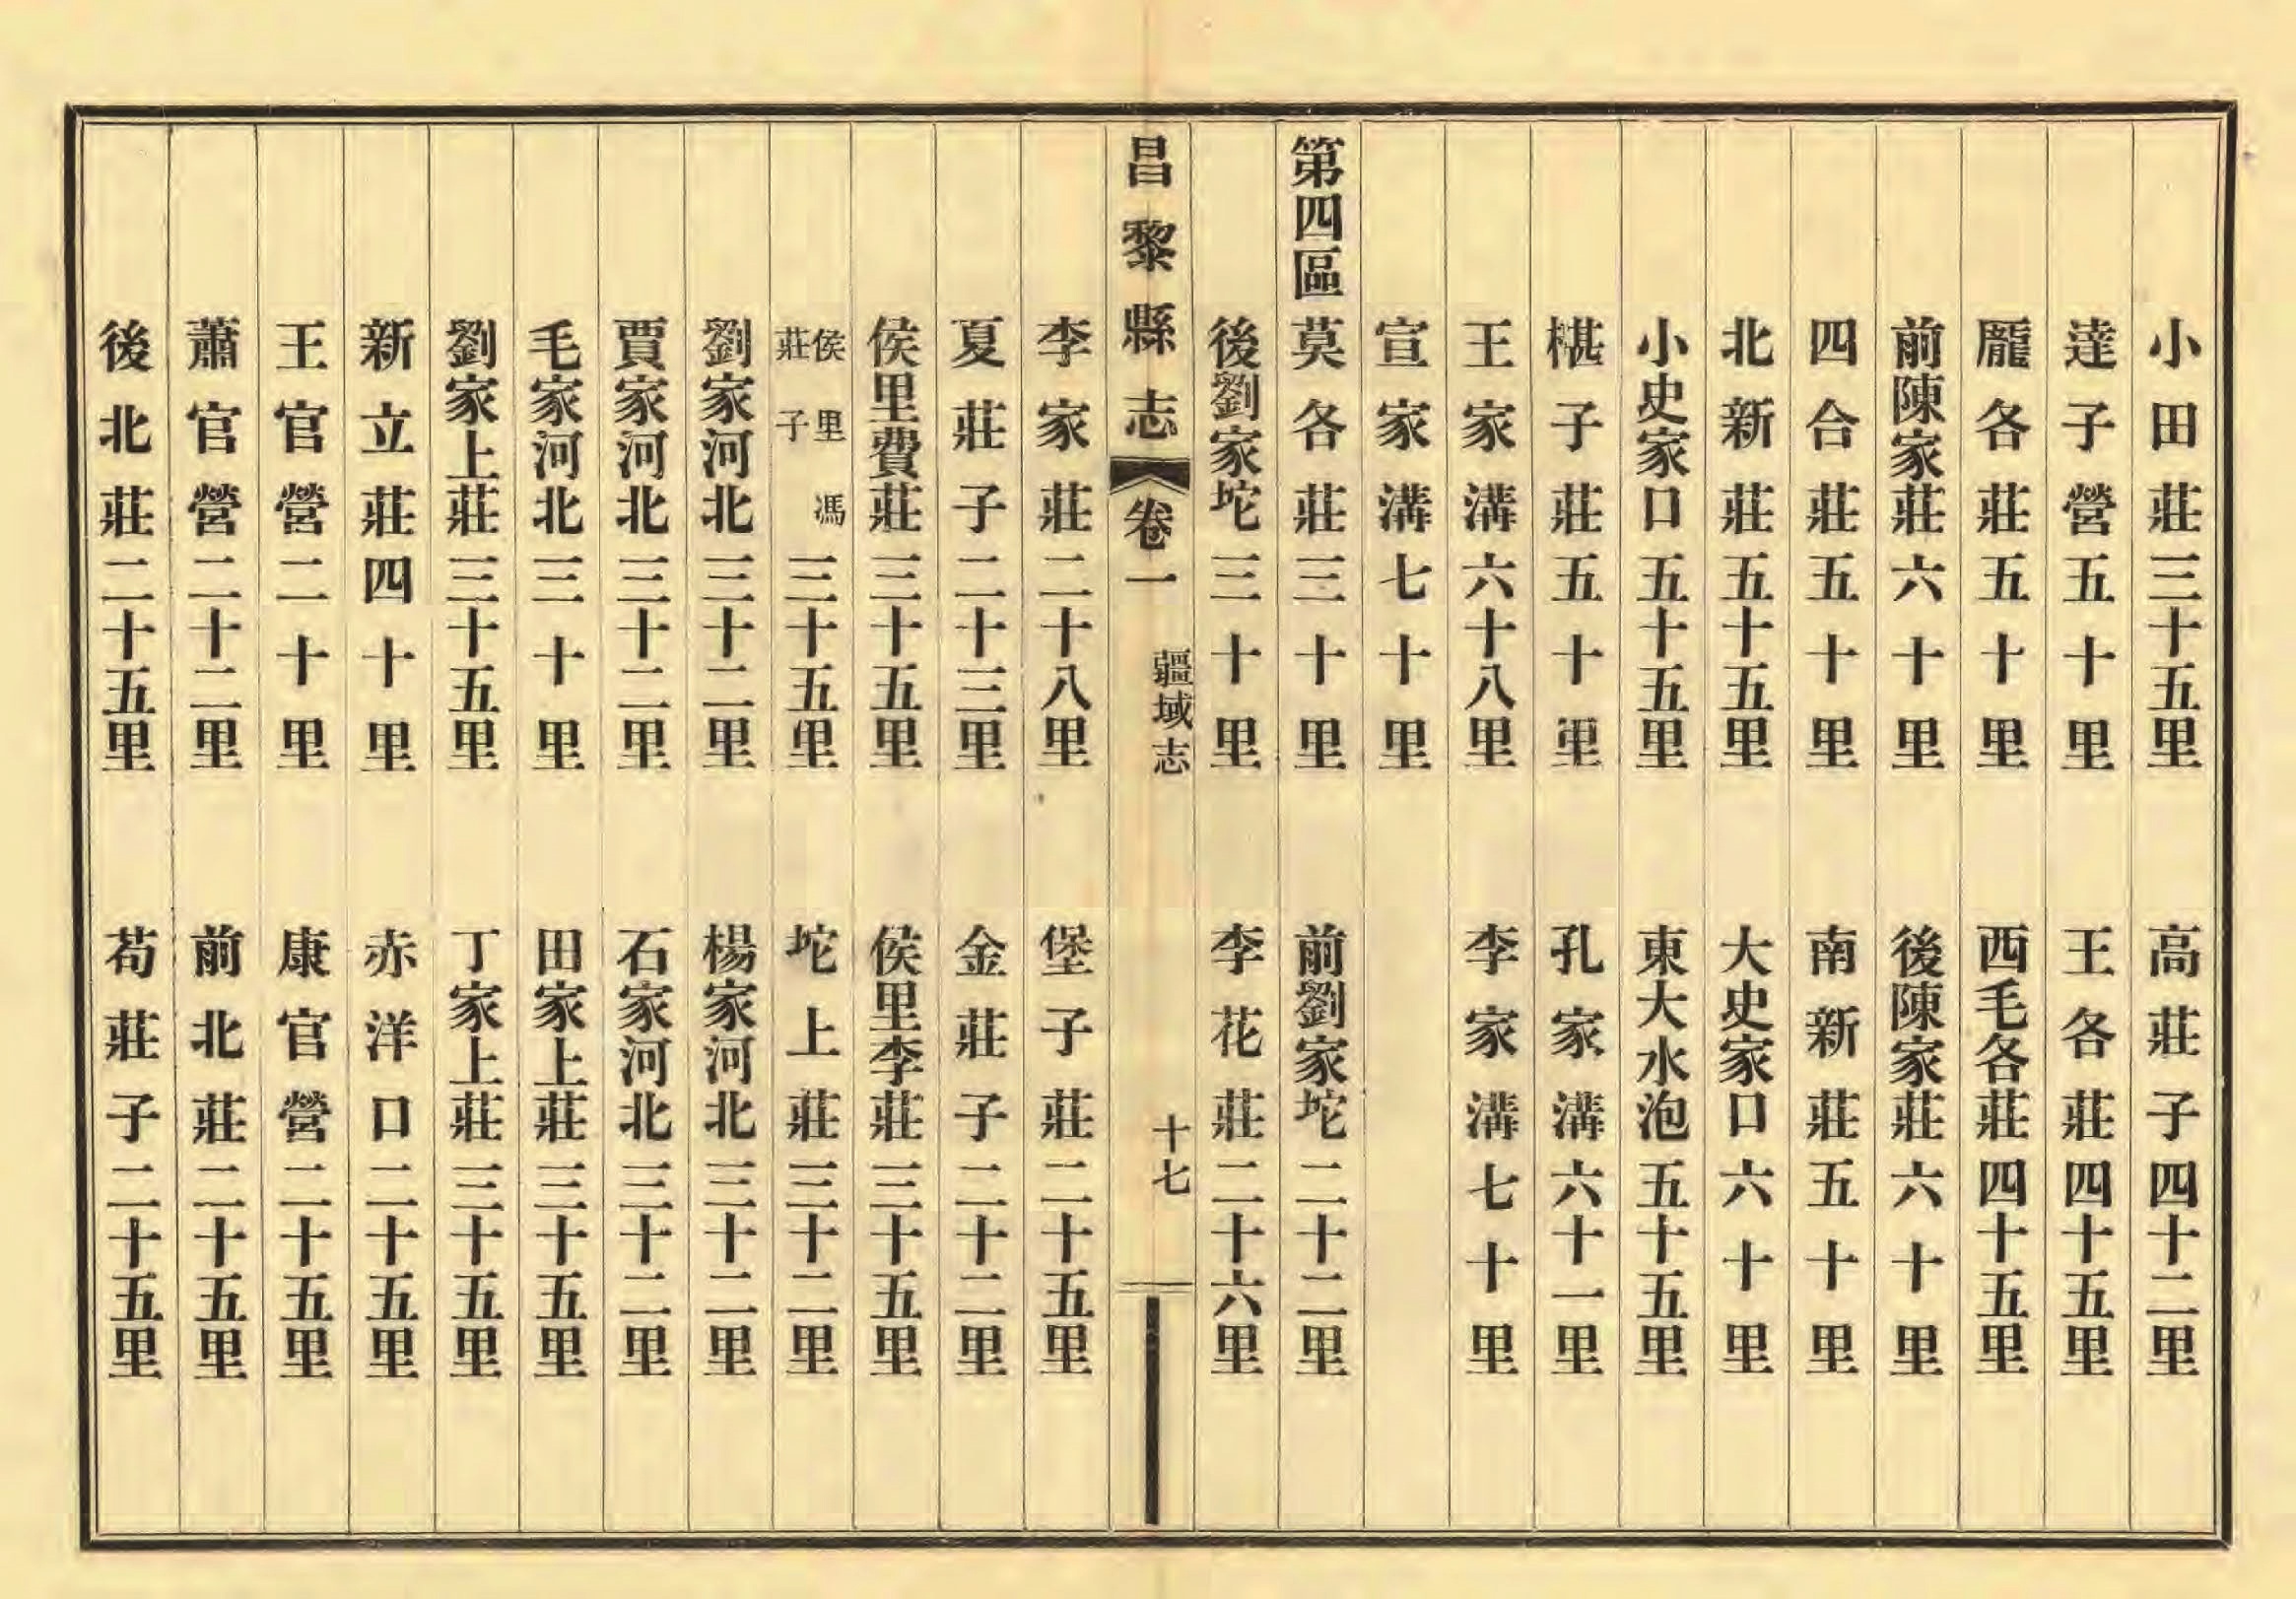 小田莊三十五里　高莊子四十二里
達子營五十里　王各莊四十五里
龎各莊五十里　西毛各莊四十五里
前陳家莊六十里　後陳家莊六十里
四合莊五十里　南新莊五十里
北新莊五十五里　大史家口六十里
小史家口五十五里　東大水泡五十五里
椹子莊五十里　孔家溝六十一里
王家溝六十八里　李家溝七十里
宣家溝七十里
第四區　莫各莊三十里　前劉家坨二十二里
後劉家坨三十里　李花莊二十六里
昌黎縣志　卷一　疆域志　十七
李家莊二十八里　堡子莊二十五里
夏莊子二十三里　金莊子二十二里
侯里費莊三十五里　侯里李莊三十五里
侯里馮莊子三十五里　坨上莊三十二里
劉家河北三十二里　楊家河北三十二里
賈家河北三十二里　石家河北三十二里
毛家河北三十里　田家上莊三十五里
劉家上莊三十五里　丁家上莊三十五里
新立莊四十里　赤洋口二十五里
王官營二十里　康官營二十五里
蕭官營二十二里　前北莊二十五里
後北莊二十五里　苟莊子二十五里